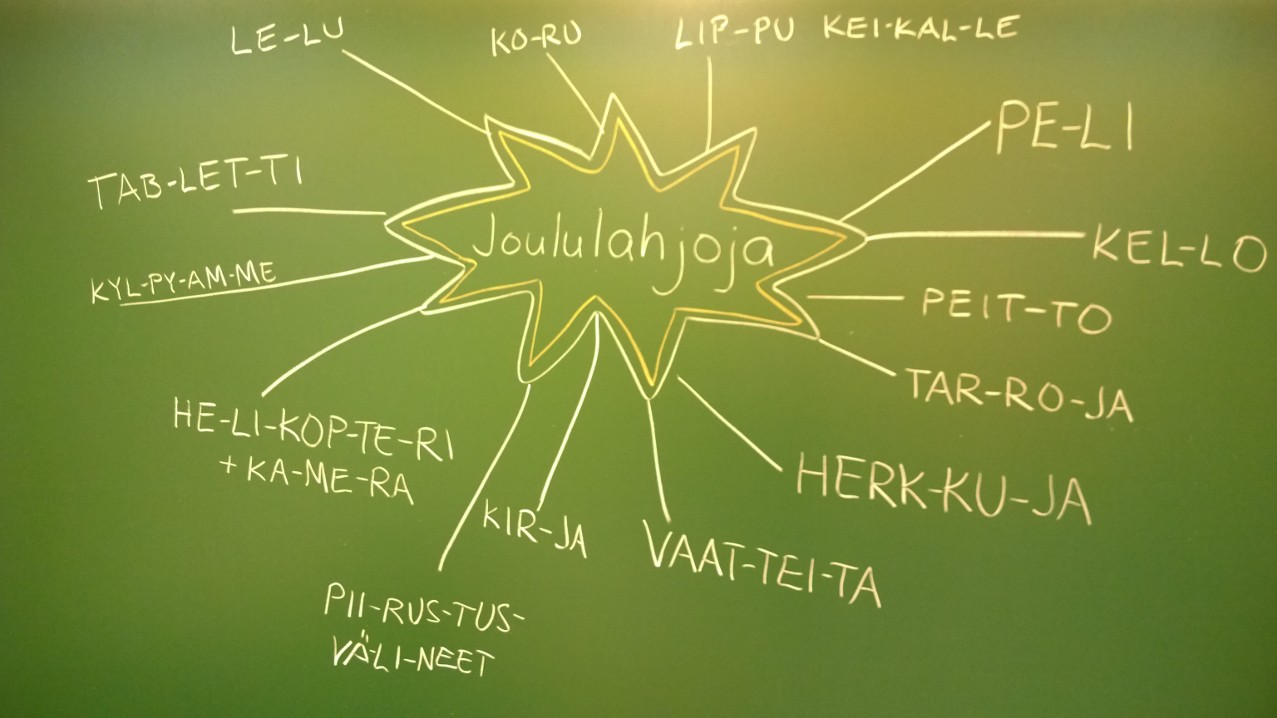 LE-LU
KO-RU
LIP-PU KEI-KAL-LE
PE-LI
TAB-LET-TI
Joululahjoja
KEL-LO
KYL-PY-AM-ME
PEIT-TO
TAR-RO-JA
HE-LI-KOP-TE-RI
+ KA-ME-RA
HERK-KU-JA
KIR-JA
VAAT-TEI-TA
PII-RUS-TUS-
VÄ-LI-NEET